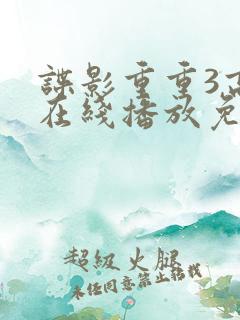 谍影重重3高
在线播放免
超级火腿
未经同意禁止转载